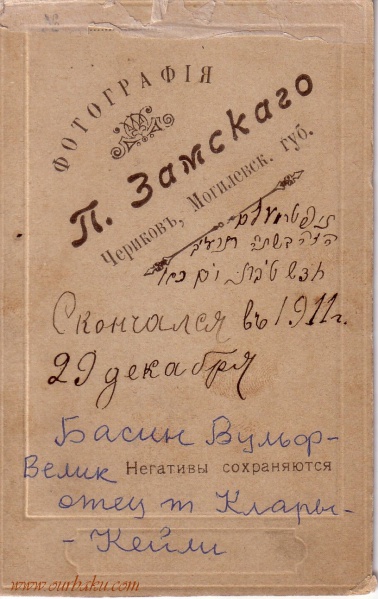 ФОТОГРАФІЯ
П. Замскаго
Чериковъ, Могилевск. губ.
חדש טבת יום
Скончался въ 1911 г.
29 декабря
Басин Вульф-
Велик Негативы сохраняются
отец т Клары-
- Кейли
www.ourbaku.com